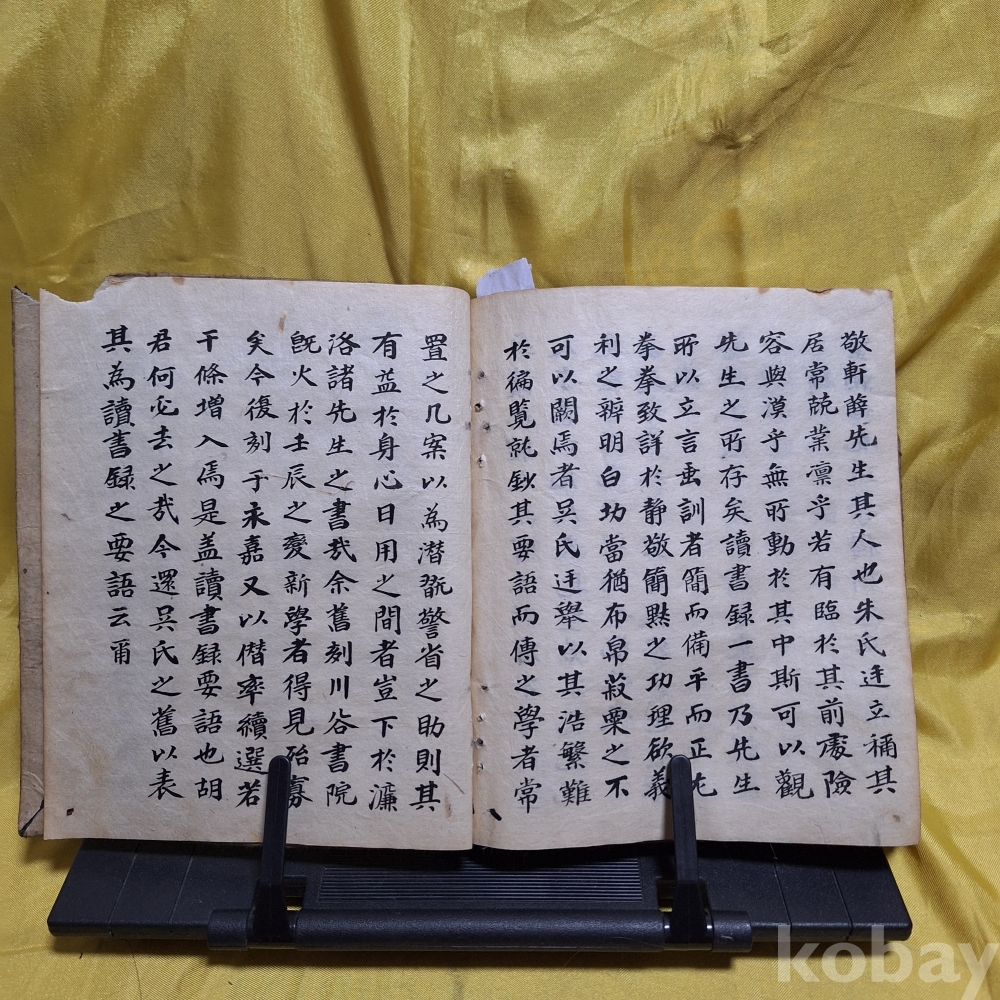 敬軒薛先生其人也朱氏廷立稱其
居常兢業凛乎若有臨於其前處險
容與漠乎無所動於其中斯可以觀
先生之所存矣讀書録一書乃先生
所以立言垂訓者簡而備平而正尤
拳拳致詳於静敬簡黙之功理欲義
利之辨明白切當猶布帛菽粟之不
可以闕焉者吴氏廷舉以其浩繁難
於徧覧就鈔其要語而傳之學者常
置之几案以為潜翫警省之助則其
有益於身心日用之間者豈下於濂
洛諸先生之書哉余舊刻川谷書院
既火於壬辰之變新學者得見殆寡
矣今復刻于永嘉又以僣率續選若
干條増入焉是盖讀書録要語也胡
君何必去之哉今還吴氏之舊以表
其為讀書録之要語云甭
kobay